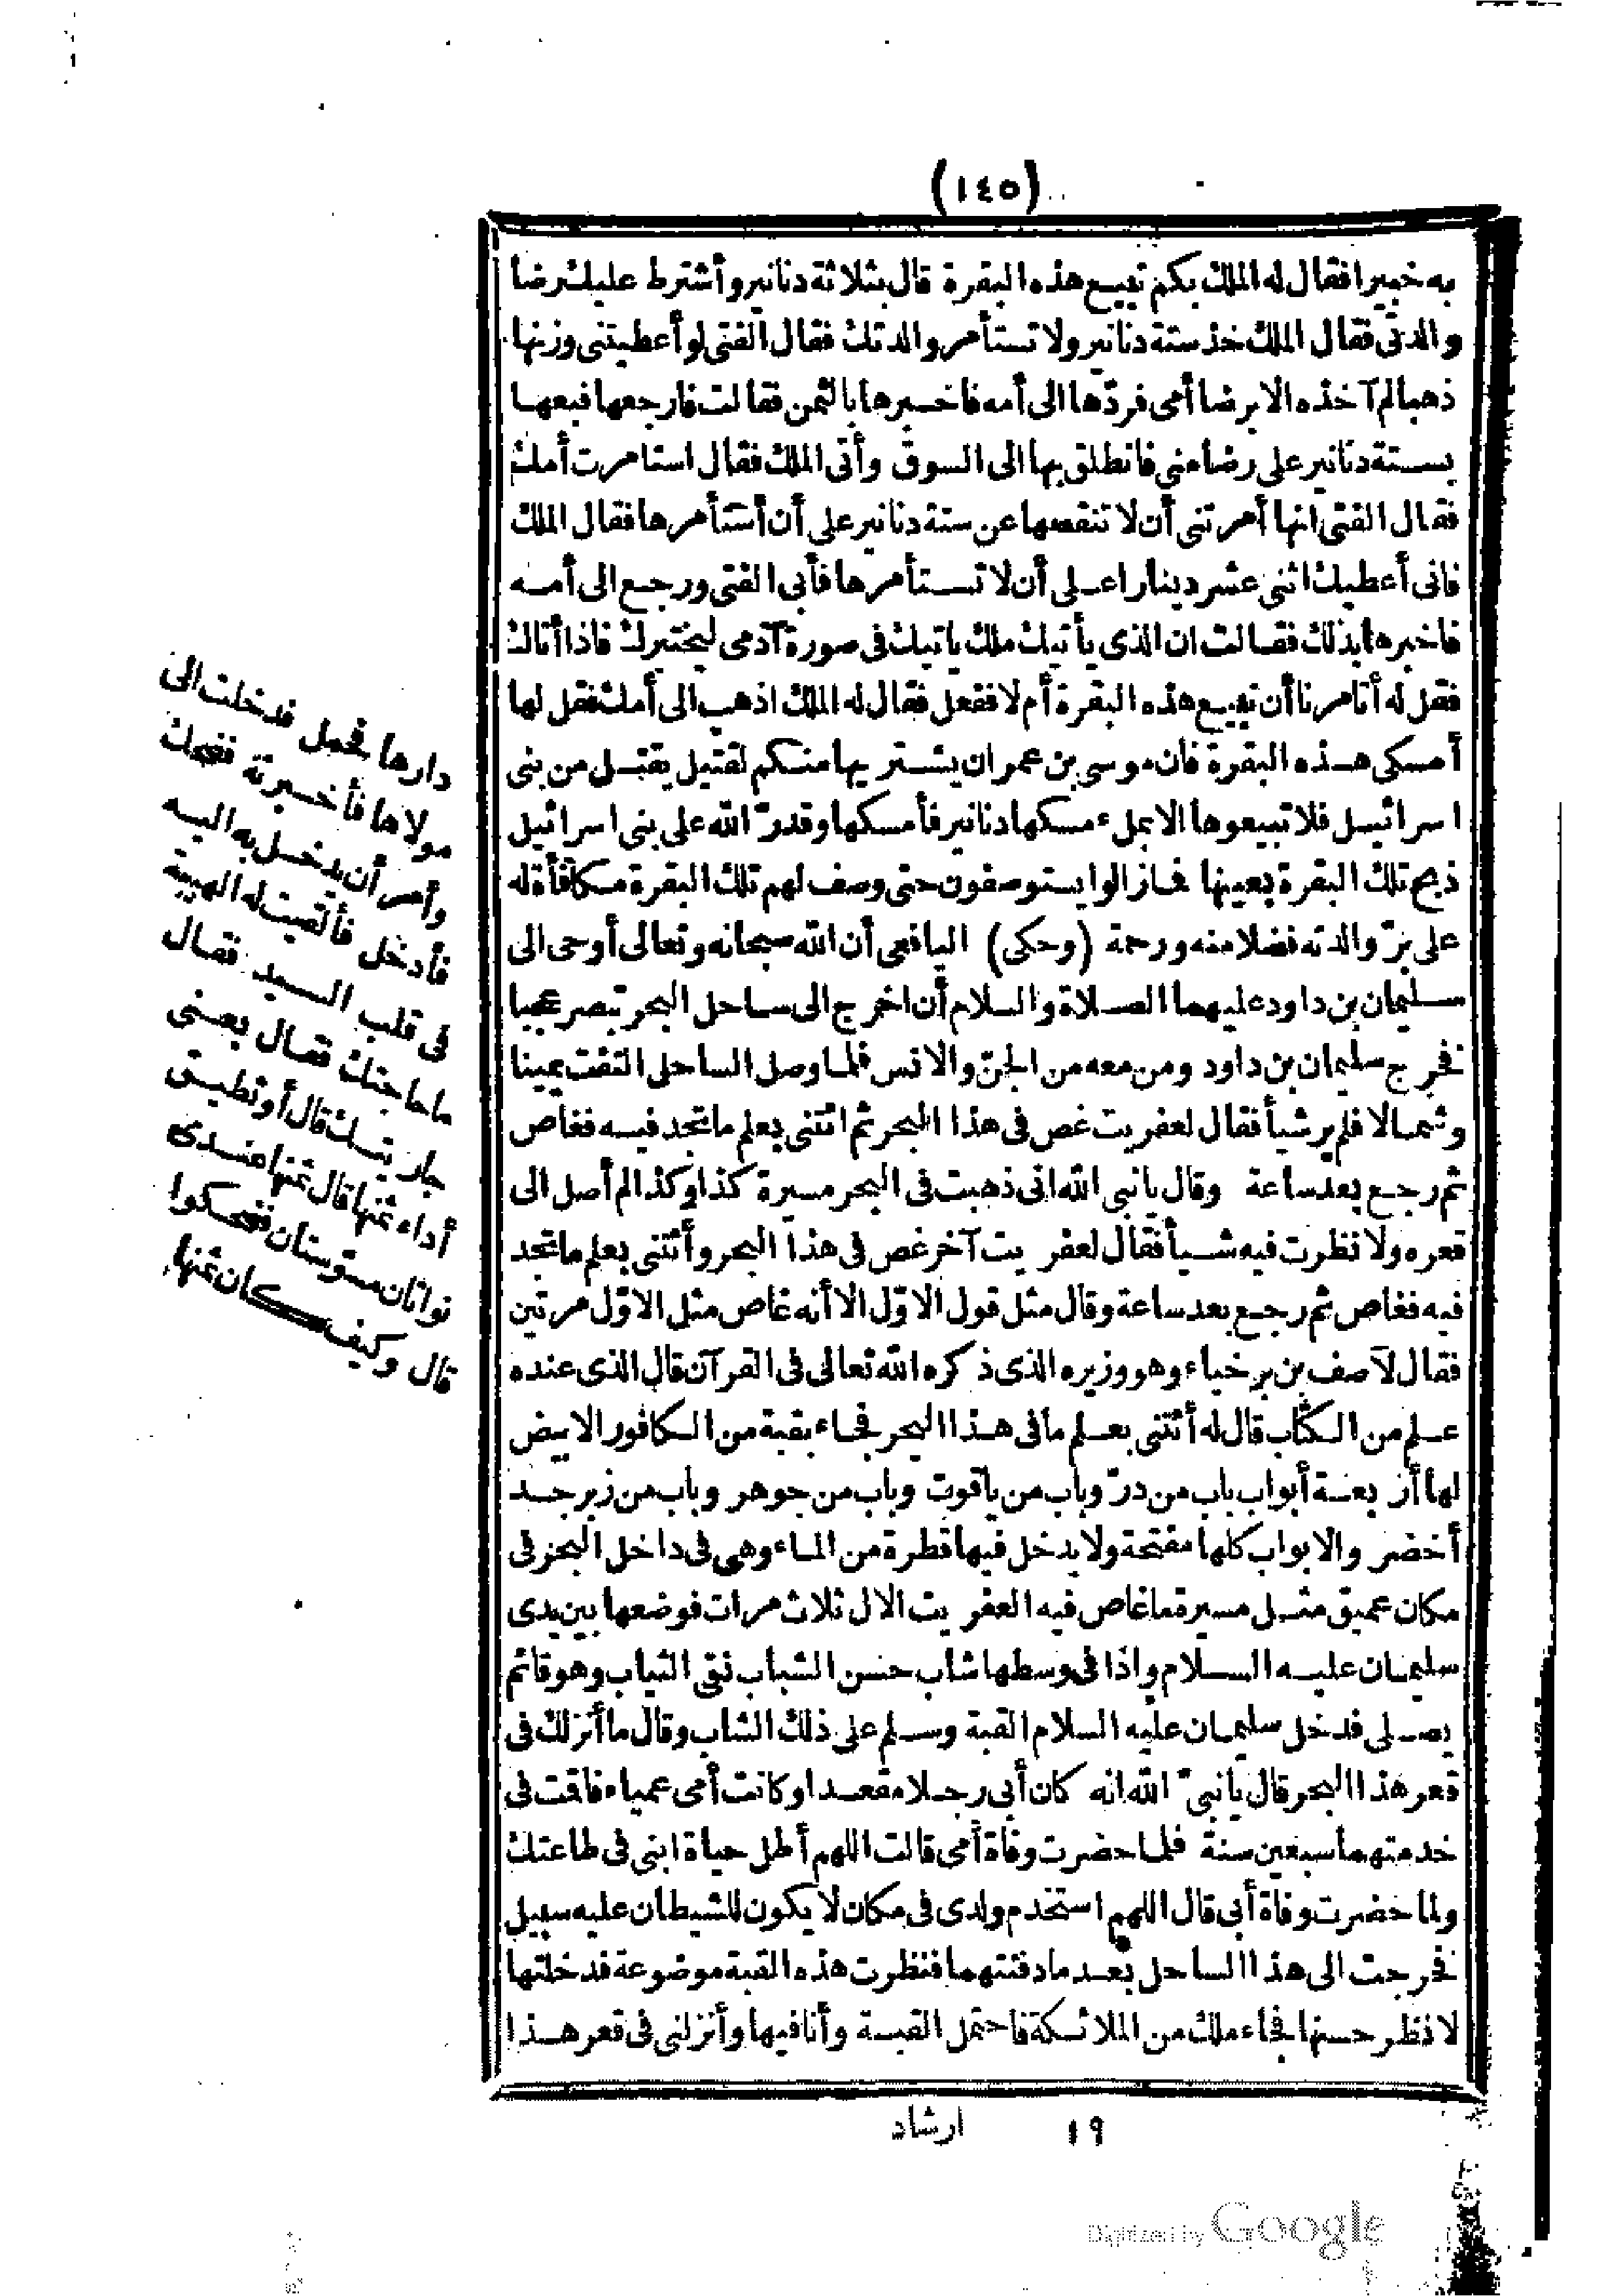 (١٤٥)
به خبيرا فقال له الملك بكم تبيع هذه البقرة قال بثلاثة دنانير وأشترط عليك رضا
والدتى فقال الملك خذ ستة دنانير ولا تستأمر والدتك فقال الفتى لو أعطيتنى وزنها
ذهبا لم آخذه الا برضا أمى فردّها الى أمه فاخبرها بالثمن فقالت فارجعها فبعها
بستة دنانير على رضا منى فانطلق بها الى السوق وأتى الملك فقال استامرت أمك
فقال الفتى انها أمرتنى أن لا تنقصها عن ستة دنانير على أن أستأمرها فقال الملك
فانى أعطيك اثنى عشر دينارا على أن لا تستأمرها فأبى الفتى ورجع الى أمه
فاخبرها بذلك فقالت ان الذى يأتيك ملك ياتيك فى صورة آدمى ليختبرك فاذا أتاك
فقل له أتامرنا أن نبيع هذه البقرة أم لا ففعل فقال له الملك اذهب الى أمك فقل لها
أمسكى هذه البقرة فان موسى بن عمران يشتريها منكم لقتيل يقتل من بنى
اسرائيل فلا تبيعوها الا بملء مسكها دنانير فأمسكها وقدرّ الله على بنى اسرائيل
ذبح تلك البقرة بعينها فمازالوا يستوصفون حتى وصف لهم تلك البقرة مكافأة له
على برّ والدته فضلا منه ورحمة (وحكى) اليافعى أن الله سبحانه وتعالى أوحى الى
سليمان بن داود عليهما الصلاة والسلام أن اخرج الى ساحل البحر تبصر عجبا
نخرج سليمان بن داود ومن معه من الجنّ والانس فلما وصل الساحل التفت يمينا
وشمالا فلم ير شيأ فقال لعفريت غص فى هذا البحر ثم ائتنى بعلم ما تجد فيه فغاص
ثم رجع بعد ساعة وقال يا نبى الله انى ذهبت فى البحر مسيرة كذا وكذا لم أصل الى
قعره ولا نظرت فيه شيأ فقال لعفريت آخر غص فى هذا البحر وأتنى بعلم ما تجد
فيه فغاص ثم رجع بعد ساعة وقال مثل قول الاوّل الا أنه غاص مثل الاوّل مرتين
فقال لآصف بن برخياء وهو وزيره الذى ذكره الله تعالى فى القرآن قال الذى عنده
علم من الكتاب قال له أئتنى بعلم ما فى هذا البحر فجاء بقبة من الكافور الابيض
لها أربعة أبواب باب من درّ وباب من ياقوت وباب من جوهر وباب من زبرجد
أخضر والابواب كلها مفتحة ولا يدخل فيها قطرة من الماء وهى فى داخل البحر فى
مكان عميق مثل مسيرة ما غاص فيه العفريت الال ثلاث مرات فوضعها بين يدى
سليمان عليه السلام واذا فى وسطها شاب حسن الشباب نقى الثياب وهو قائم
يصلى فدخل سليمان عليه السلام القبة وسلم على ذلك الشاب وقال ما أنزلك فى
قعر هذا البحر قال يا نبىّ الله انه كان أبى رجلا مقعدا وكانت أمى عمياء فاقت فى
خدمتهما سبعين سنة فلما حضرت وفاة أمى قالت اللهم أطل حياة ابنى فى طاعتك
ولما حضرت وفاة أبى قال اللهم استخدم ولدى فى مكان لا يكون للشيطان عليه سبيل
نخرجت الى هذا الساحل بعد ما دفنتهما فنظرت هذه القبة موضوعة فدخلتها
لانظر حسنها فجاء ملك من الملائكة فاحتمل القبة وأنا فيها وأنزلنى فى قعر هذا
دارها بحمل فدخلت الى
مولاها فأخبرته فضحك
وأمر أن يدخل به اليه
فأدخل فألقيت له الهيبة
فى قلب السيد فقال
ما حاجتك فقال بعنى
جاريتك قال أو تطيق
أداء ثمنها قال ثمنها عندى
نواتان مسوّستان فضحكوا
قال وكيف كان ثمنها
١٩ ارشاد
Digitized by Google